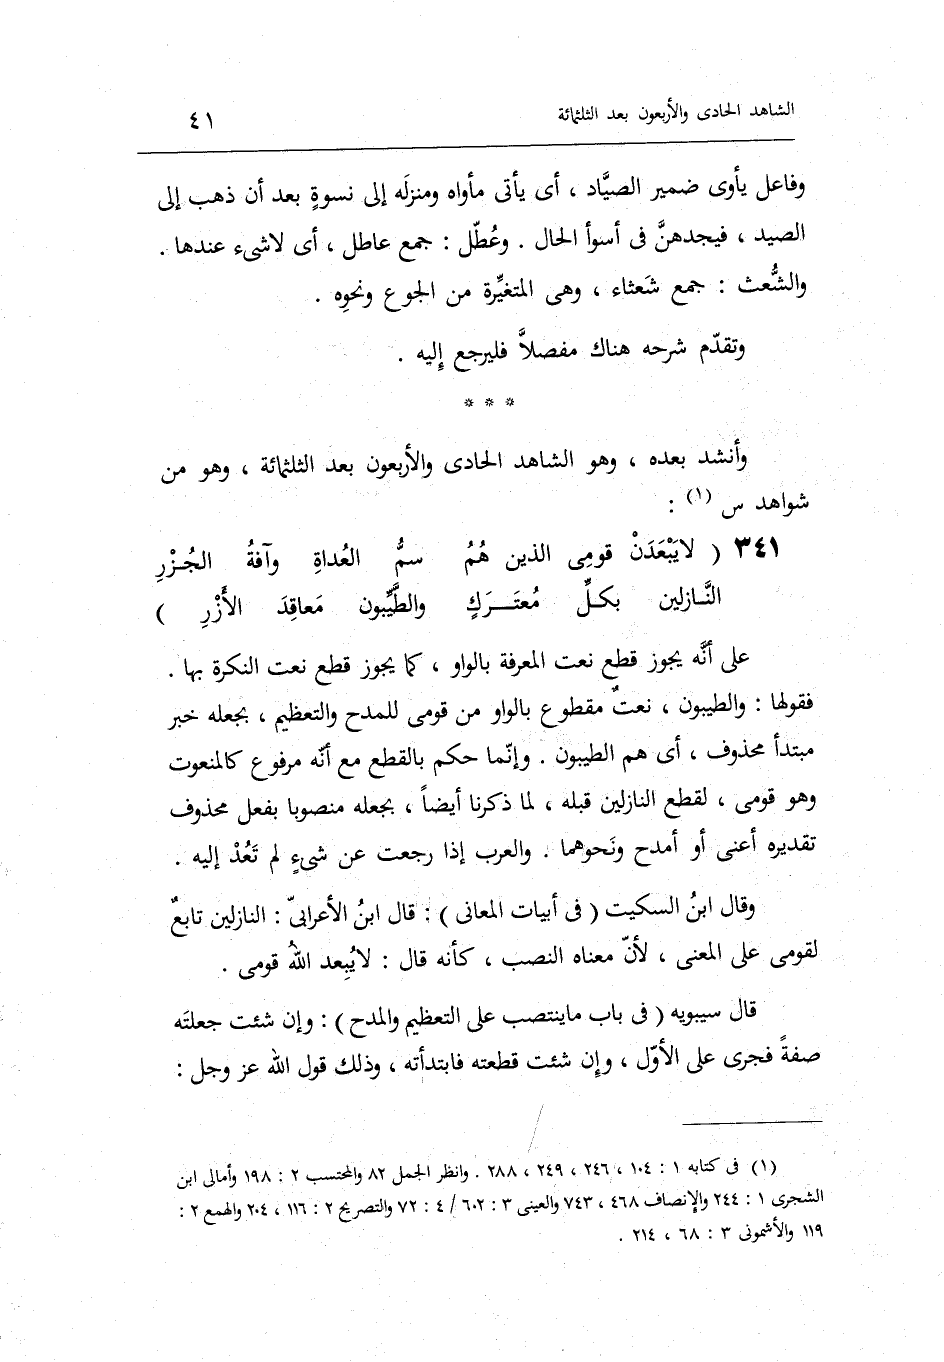 الشاهد الحادى والأربعون بعد الثلثمائة ٤١
وفاعل يأوى ضمير الصيَّاد ، أى يأتى مأواه ومنزلَه إلى نسوةٍ بعد أن ذهب إلى
الصيد ، فيجدهنَّ فى أسوأ الحال . وعُطّل : جمع عاطل ، أى لاشىء عندها .
والشُّعث : جمع شَعثاء ، وهى المتغيِّرة من الجوع ونحوِه .
وتقدّم شرحه هناك مفصلاً فليرجع إليه .
* * *
وأنشد بعده ، وهو الشاهد الحادى والأربعون بعد الثلثمائة ، وهو من
شواهد س (١) :
٣٤١ ( لايَبْعَدَنْ قومِى الذين هُمُ سمُّ العُداةِ وآفةُ الجُزْرِ
النَّازلين بكلِّ مُعتَرَكٍ والطَّيِّبون مَعاقِدَ الأُزْرِ )
على أنَّه يجوز قطع نعت المعرفة بالواو ، كما يجوز قطع نعت النكرة بها .
فقولها : والطيبون ، نعتٌ مقطوع بالواو من قومى للمدح والتعظيم ، بجعله خبر
مبتدأ محذوف ، أى هم الطيبون . وإنّما حكم بالقطع مع أنّه مرفوع كالمنعوت
وهو قومى ، لقطع النازلين قبله ، لما ذكرنا أيضاً ، بجعله منصوبا بفعل محذوف
تقديره أعنى أو أمدح ونَحوهما . والعرب إذا رجعت عن شىءٍ لم تَعُدْ إليه .
وقال ابنُ السكيت ( فى أبيات المعانى ) : قال ابنُ الأعرابىّ : النازلين تابعٌ
لقومى على المعنى ، لأنّ معناه النصب ، كأنه قال : لايُبعِد اللهُ قومى .
قال سيبويه ( فى باب ماينتصب على التعظيم والمدح ) : وإن شئت جعلتَه
صفةً فجرى على الأوّل ، وإن شئت قطعته فابتدأته ، وذلك قول الله عز وجل :
(١) فى كتابه ١ : ١٠٤ ، ٢٤٦ ، ٢٤٩ ، ٢٨٨ . وانظر الجمل ٨٢ والمحتسب ٢ : ١٩٨ وأمالى ابن
الشجرى ١ : ٢٤٤ والإنصاف ٤٦٨ ، ٧٤٣ والعينى ٣ : ٦٠٢ / ٤ : ٧٢ والتصريح ٢ : ١١٦ ، ٢٠٤ والهمع ٢ :
١١٩ والأشمونى ٣ : ٦٨ ، ٢١٤ .